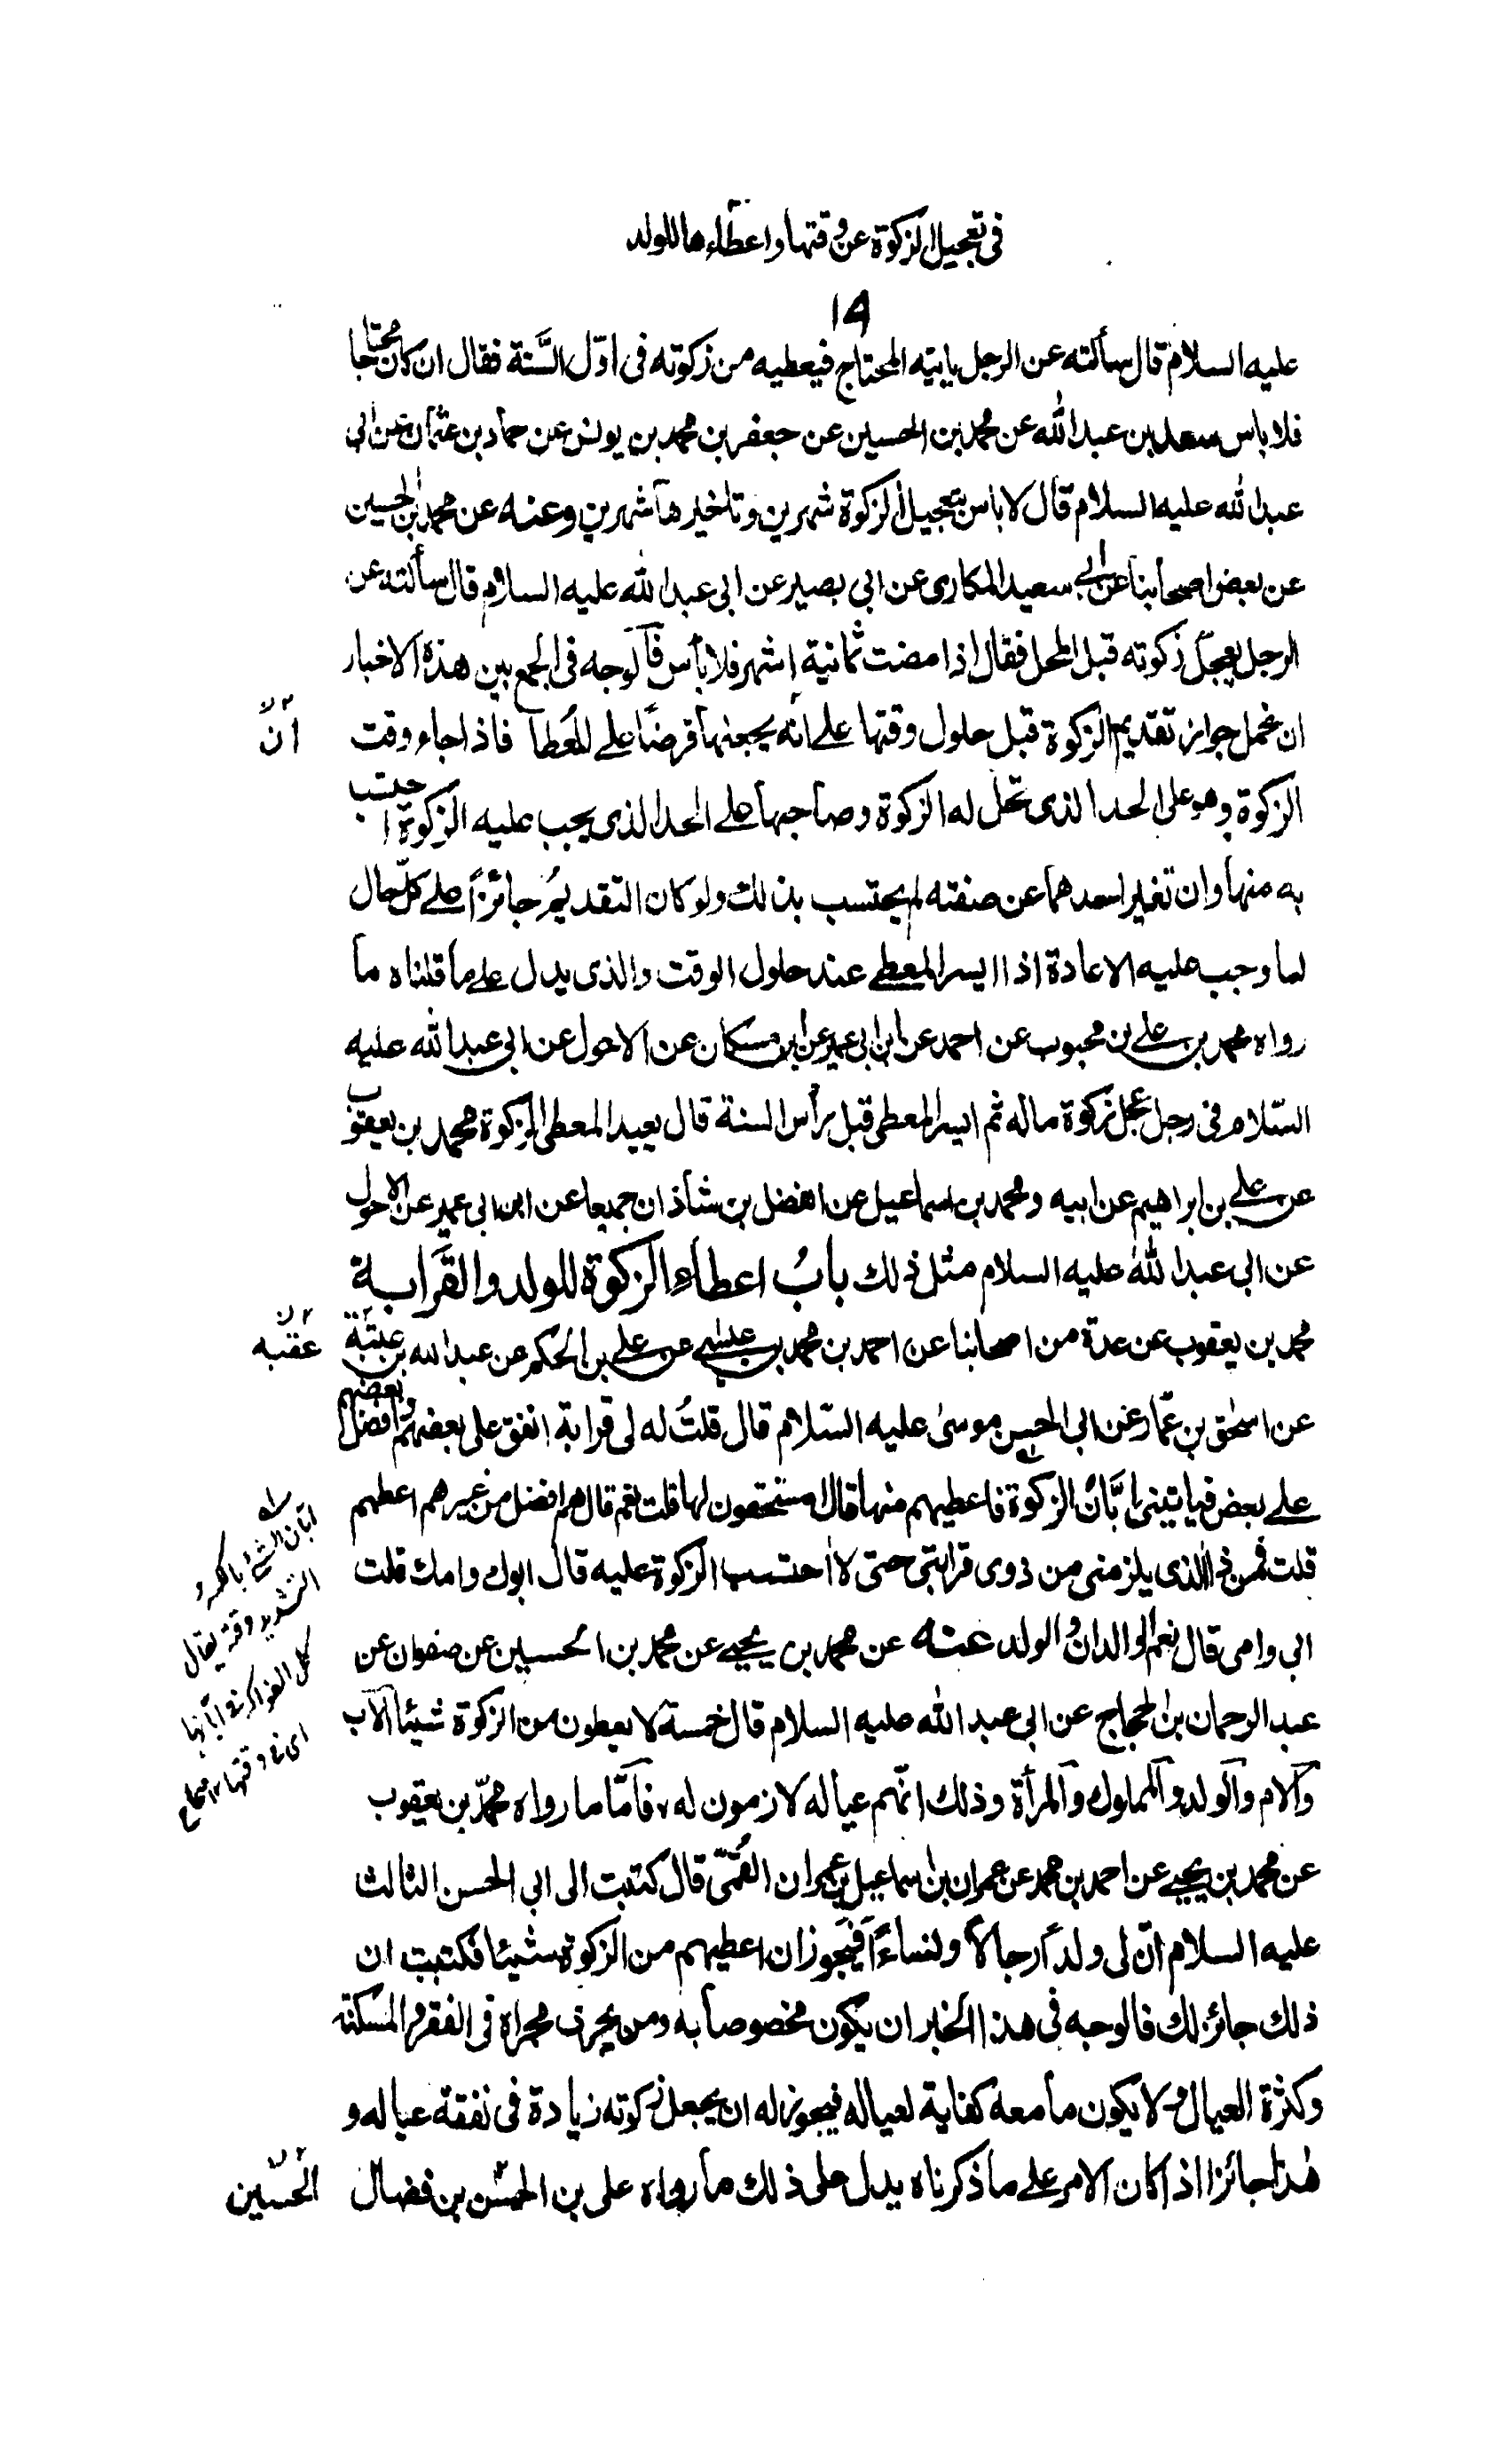 في تعجيل الزكوة عن وقتها واعطاءها للولد
١٩
عليه السلام قال سألته عن الرجل ياتيه المحتاج فيعطيه من زكوته في اوّل السَّنة فقال ان كان مُحتاجا
فلا باس سعد بن عبد الله عن محمد بن الحسين عن جعفر بن محمد بن يونس عن حماد بن عثمان عن ابى
عبد الله عليه السلام قال لا باس بتعجيل الزكوة شهرين وتاخيرها شهرين وعنه عن محمد بن الحسين
عن بعض اصحابنا عن ابي سعيد المكارى عن ابى بصير عن ابى عبد الله عليه السلام قال سألته عن
الرجل يعجل زكوته قبل المحل فقال اذا مضت ثمانية اشهر فلا بأس فالوجه فى الجمع بين هذه الاخبار
ان نحمل جواز تقديم الزكوة قبل حلول وقتها على انه يجعلها قرضًا على المُعطا فاذا جاء وقت
أن
الزكوة وهو على الحد الذى تحل له الزكوة وصاحبها على الحد الذى يجب عليه الزكوة احتسب
به منها وان تغير احدهما عن صفته لم يحتسب بذلك ولو كان التقديمُ جائزاً على كلّ حال
لما وجب عليه الاعادة اذا ايسر المعطى عند حلول الوقت والذى يدل على ما قلناه ما
رواه محمد بن على بن محبوب عن احمد عن ابن ابى عمير عن ابن مسكان عن الاحول عن ابى عبد الله عليه
السّلام فى رجل عجل زكوة ماله ثم ايسر المعطى قبل رأس السنة قال يعيد المعطى الزكوة محمد بن يعقوب
عن على بن ابراهيم عن ابيه ومحمد بن اسماعيل عن الفضل بن شاذان جميعا عن ابن ابى عمير عن الاحول
عن ابى عبد الله عليه السلام مثل ذلك بابُ اعطاءِ الزكوة للولد والقَرابة
محمد بن يعقوب عن عدة من اصحابنا عن احمد بن محمد بن عيسى عن على بن الحكم عن عبد الله بن عتبَة
عقبه
عن اسحٰق بن عمّار عن ابى الحسن موسىٰ عليه السّلام قال قلتُ له لى قرابة انفق على بعضهم وافضل بعضهم
على بعض فياتينى ابَّانُ الزكوة فاعطيهم منها قال امستحقون لها قلت نعم قال هم افضل من غيرهم اعطهم
قلت فمن ذا الذى يلزمنى من ذوى قرابتى حتى لا احتسب الزكوة عليه قال ابوك وامك قلت
ابى وامى قال نعم الوالدان والولد عنه عن محمد بن يحيى عن محمد بن الحسين عن صفوان عن
عبد الرحمان بن الحجاج عن ابى عبد الله عليه السلام قال خمسة لا يعطون من الزكوة شيئا الاب
والام والولد والمملوك والمرأة وذلك انّهم عياله لازمون له فامّا ما رواه محمّد بن يعقوب
عن محمد بن يحيى عن احمد بن محمد عن عمران بن اسماعيل بن عمران القُمّى قال كتبت الى ابى الحسن الثالث
عليه السلام انّ لى ولداً رجالاً ونساءً أفيَجوز ان اعطيهم من الزكوة شيئا فكتب ان
ذلك جائز لك فالوجه فى هذا الخبر ان يكون مخصوصا به ومن يجرى مجراه فى الفقر والمسكنة
وكثرة العيال ولا يكون ما معه كفاية لعياله فيجوز له ان يجعل زكوته زيادة فى نفقة عياله و
هٰذا جائز اذا كان الامر على ما ذكرناه يدل على ذلك ما رواه على بن الحسن بن فضال
الحسين
ابّان الشئ بالكسر و
التشديد وقته يقال
كل الفواكه فى ابّانها
اى فى وقتها ١٢ صحاح